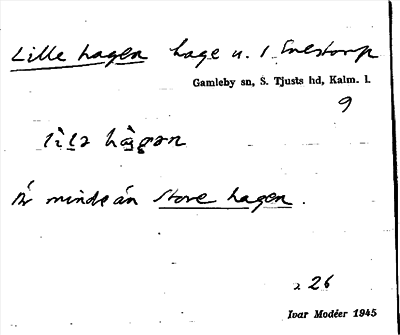 Lille hagen hage u. 1 Enestorp
Gamleby sn, S. Tjusts hd, Kalm. l.
9
lìlə hàgən
Är mindre än Store hagen.
226
Ivar Modéer 1945